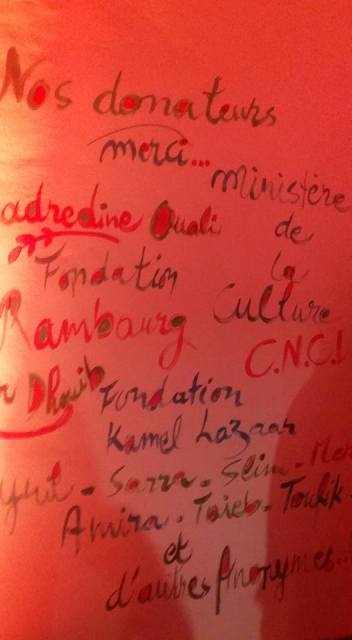 Nos donateurs
merci...
Ministère
adredine Ouali
de
Fondation
la
Rambourg
Culture
C.N.C.I
Dhouib
Fondation
Kamel Lazaar
Sarra - Slim -
Amira - Taieb - Toufik
et
d'autres Anonymes..